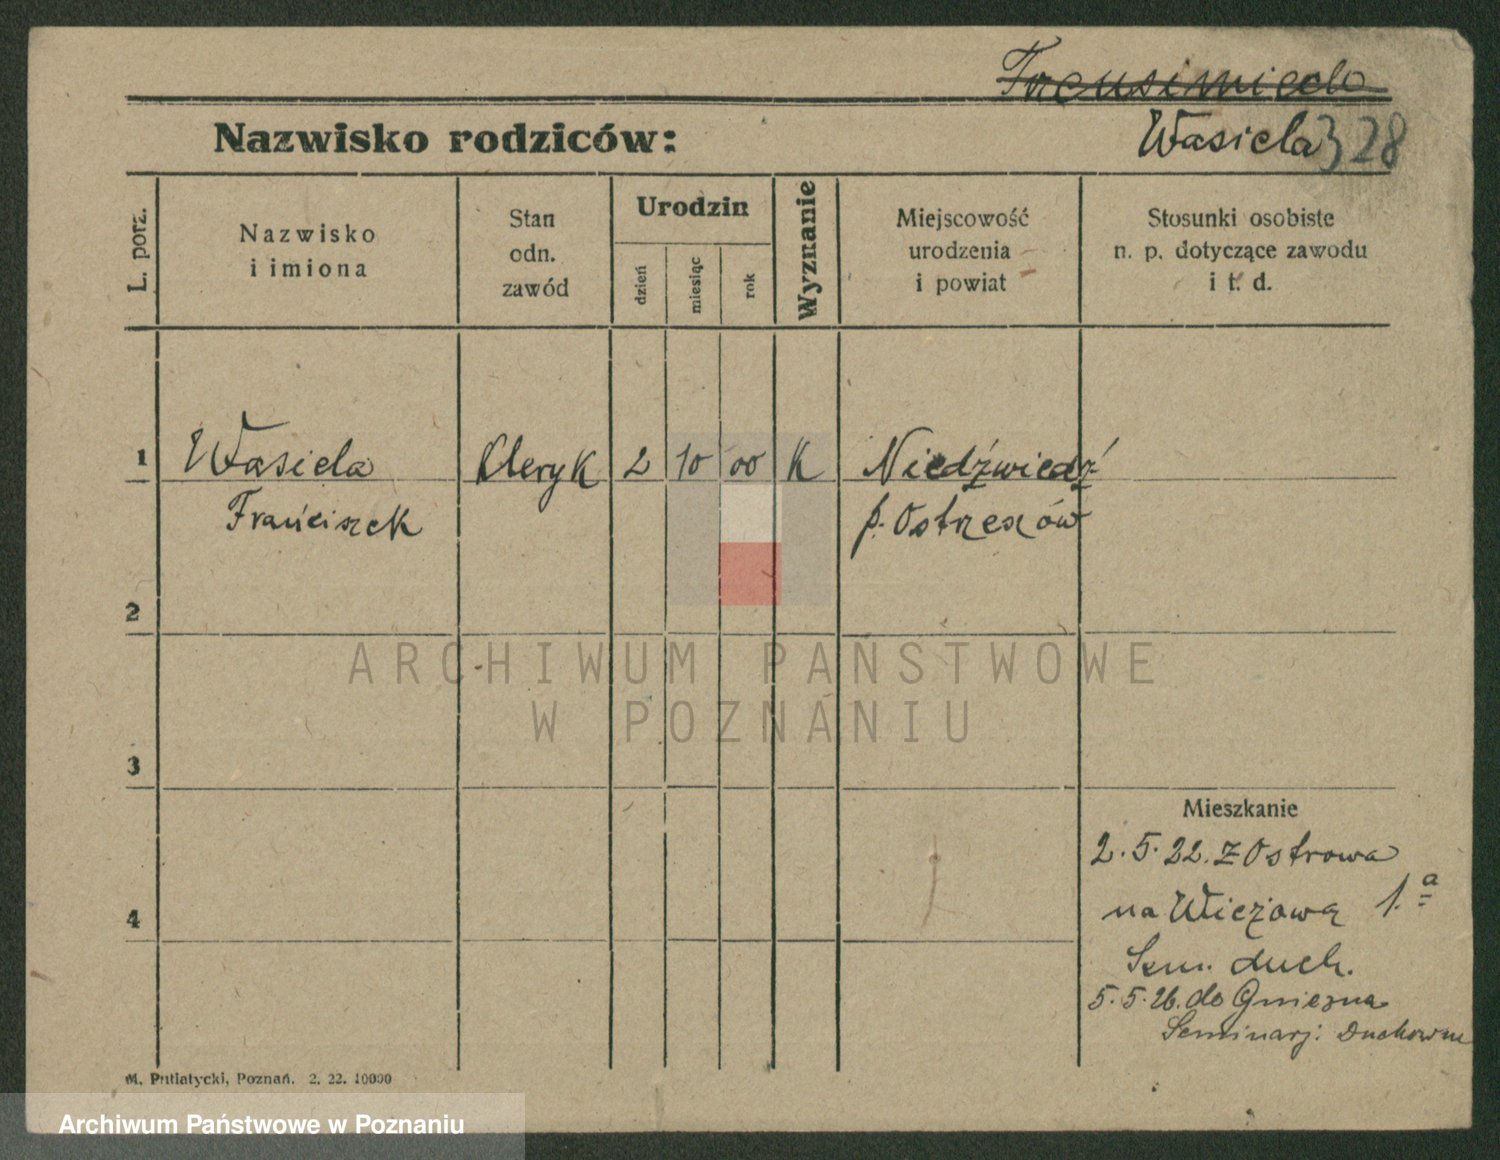 Wasiela 328
Nazwisko rodziców:
L. porz.
Nazwisko
i imiona
Stan
odn.
zawód
Urodzin
dzień
miesiąc
rok
Wyznanie
Miejscowość
urodzenia
i powiat
Stosunki osobiste
n. p. dotyczące zawodu
i t. d.
1 Wasiela Kleryk 2 10 00 K Niedźwiedź
Franciszek p. Ostrzeszów
2
ARCHIWUM PAŃSTWOWE
W POZNANIU
3
Mieszkanie
2.5.22. z Ostrowa
4
na Wieżową 1.a
Sem. duch.
5.5.26. do Gniezna
Seminarj: Duchowne
M. Putiatycki, Poznań. 2. 22. 10000
Archiwum Państwowe w Poznaniu